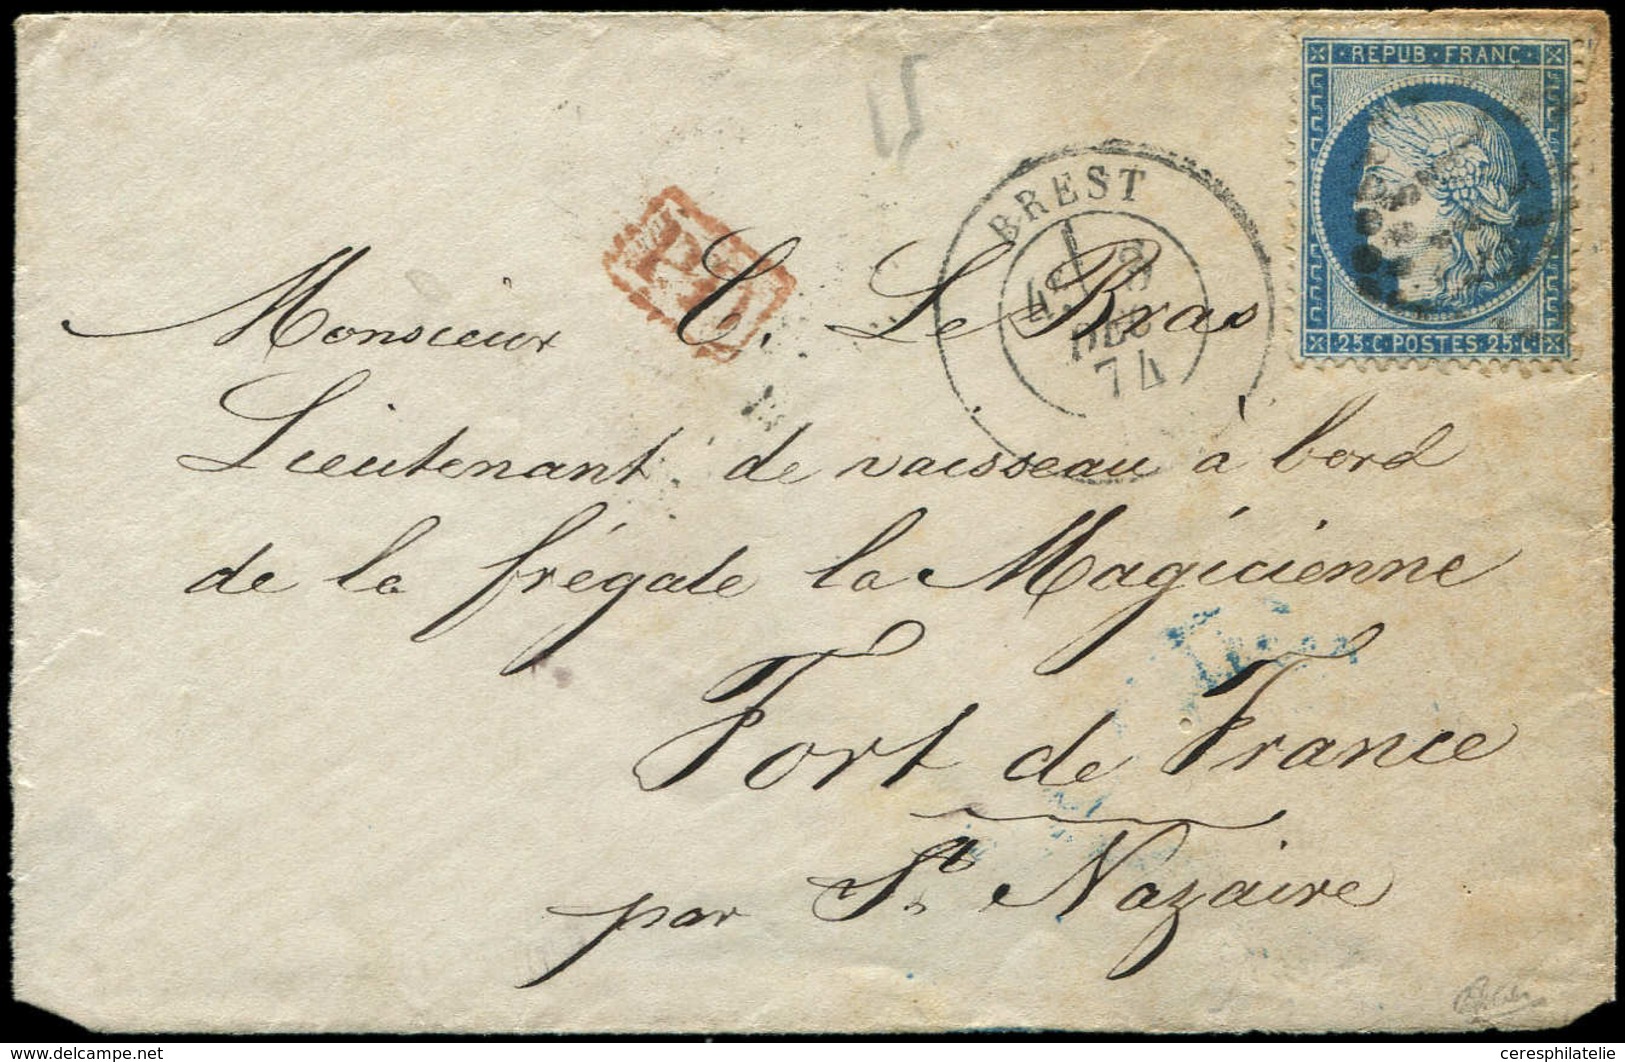 15
REPUB · FRANC
25 · C · POSTES · 25 · C
BREST
8
DEC
74
PD
Monsieur C. Le Bras
Lieutenant de vaisseau à bord
de la frégate la Magicienne
Fort de France
par St Nazaire
www.delcampe.net
ceresphilatelie